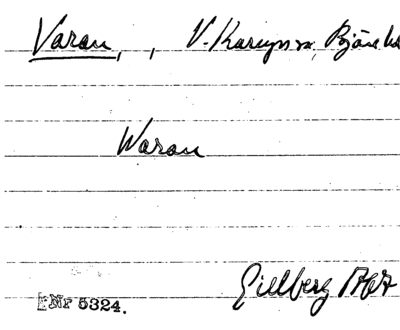 Varan, , V. Karup sn, Bjäre hd
Waran
Gillberg
Nr 5324.